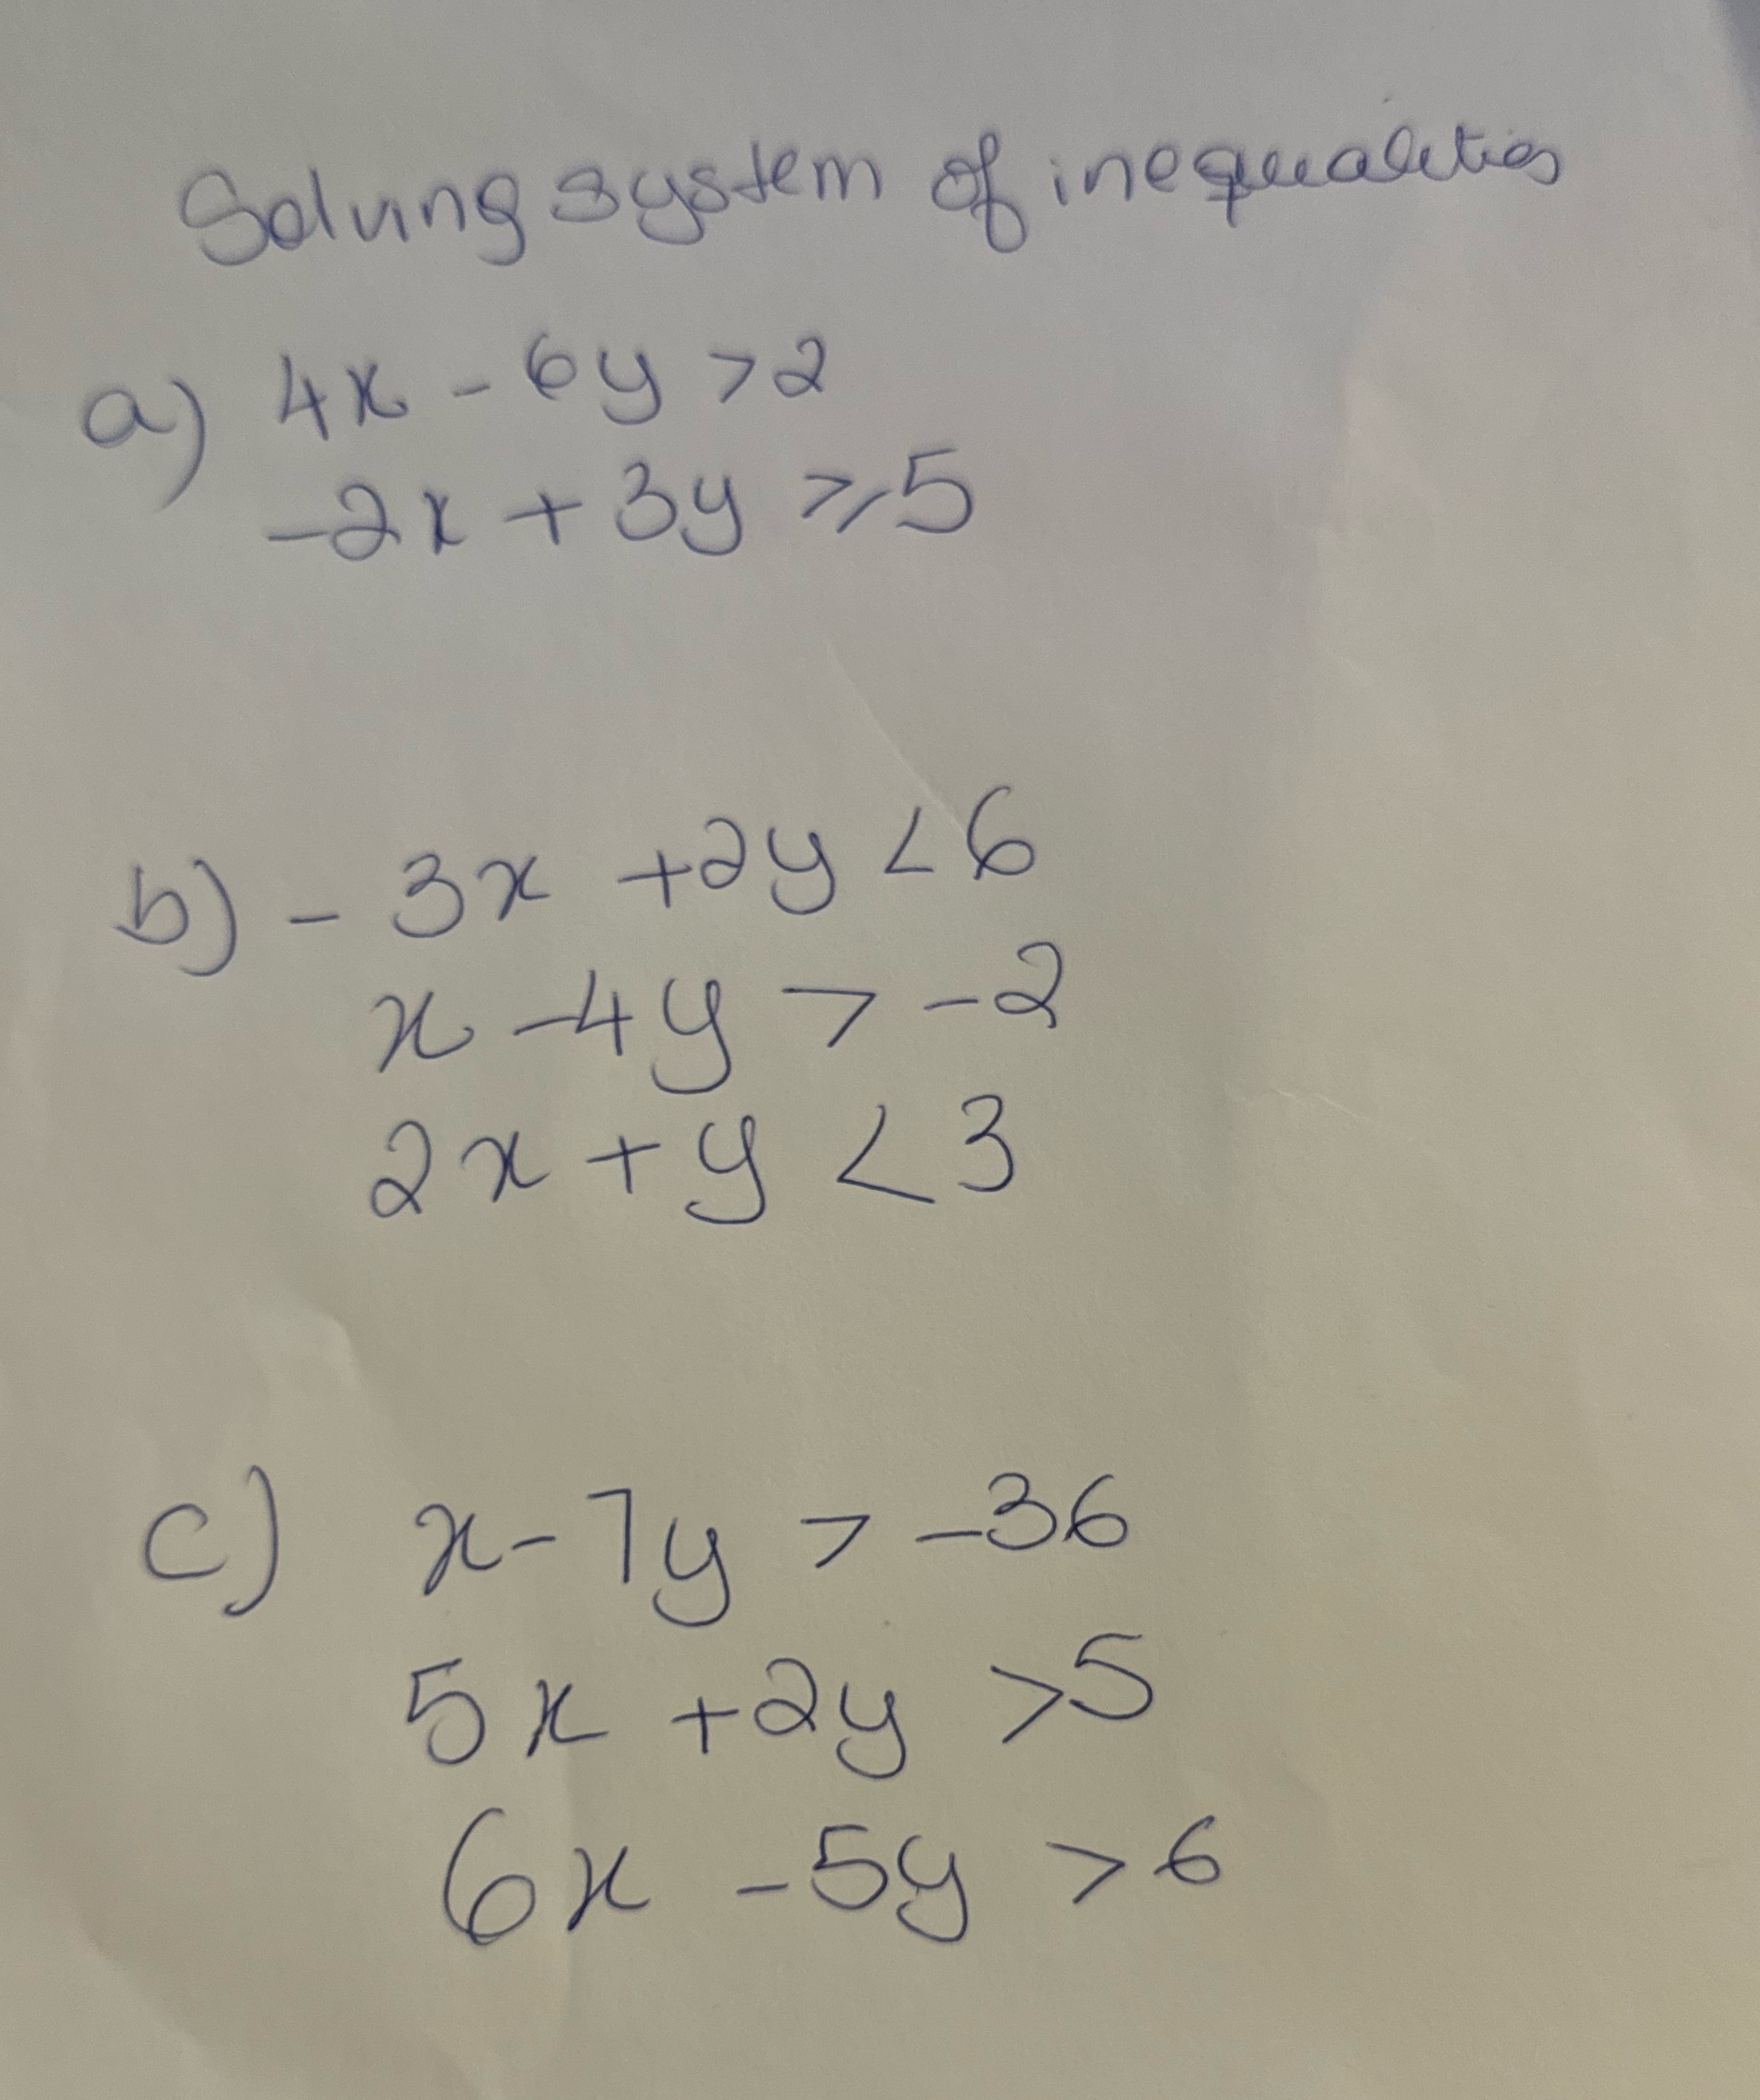 Solving system of inequalities
a) 4x - 6y > 2
-2x + 3y ⩾ 5
b) - 3x + 2y < 6
x - 4y > -2
2x + y < 3
c) x - 7y > -36
5x + 2y > 5
6x - 5y > 6